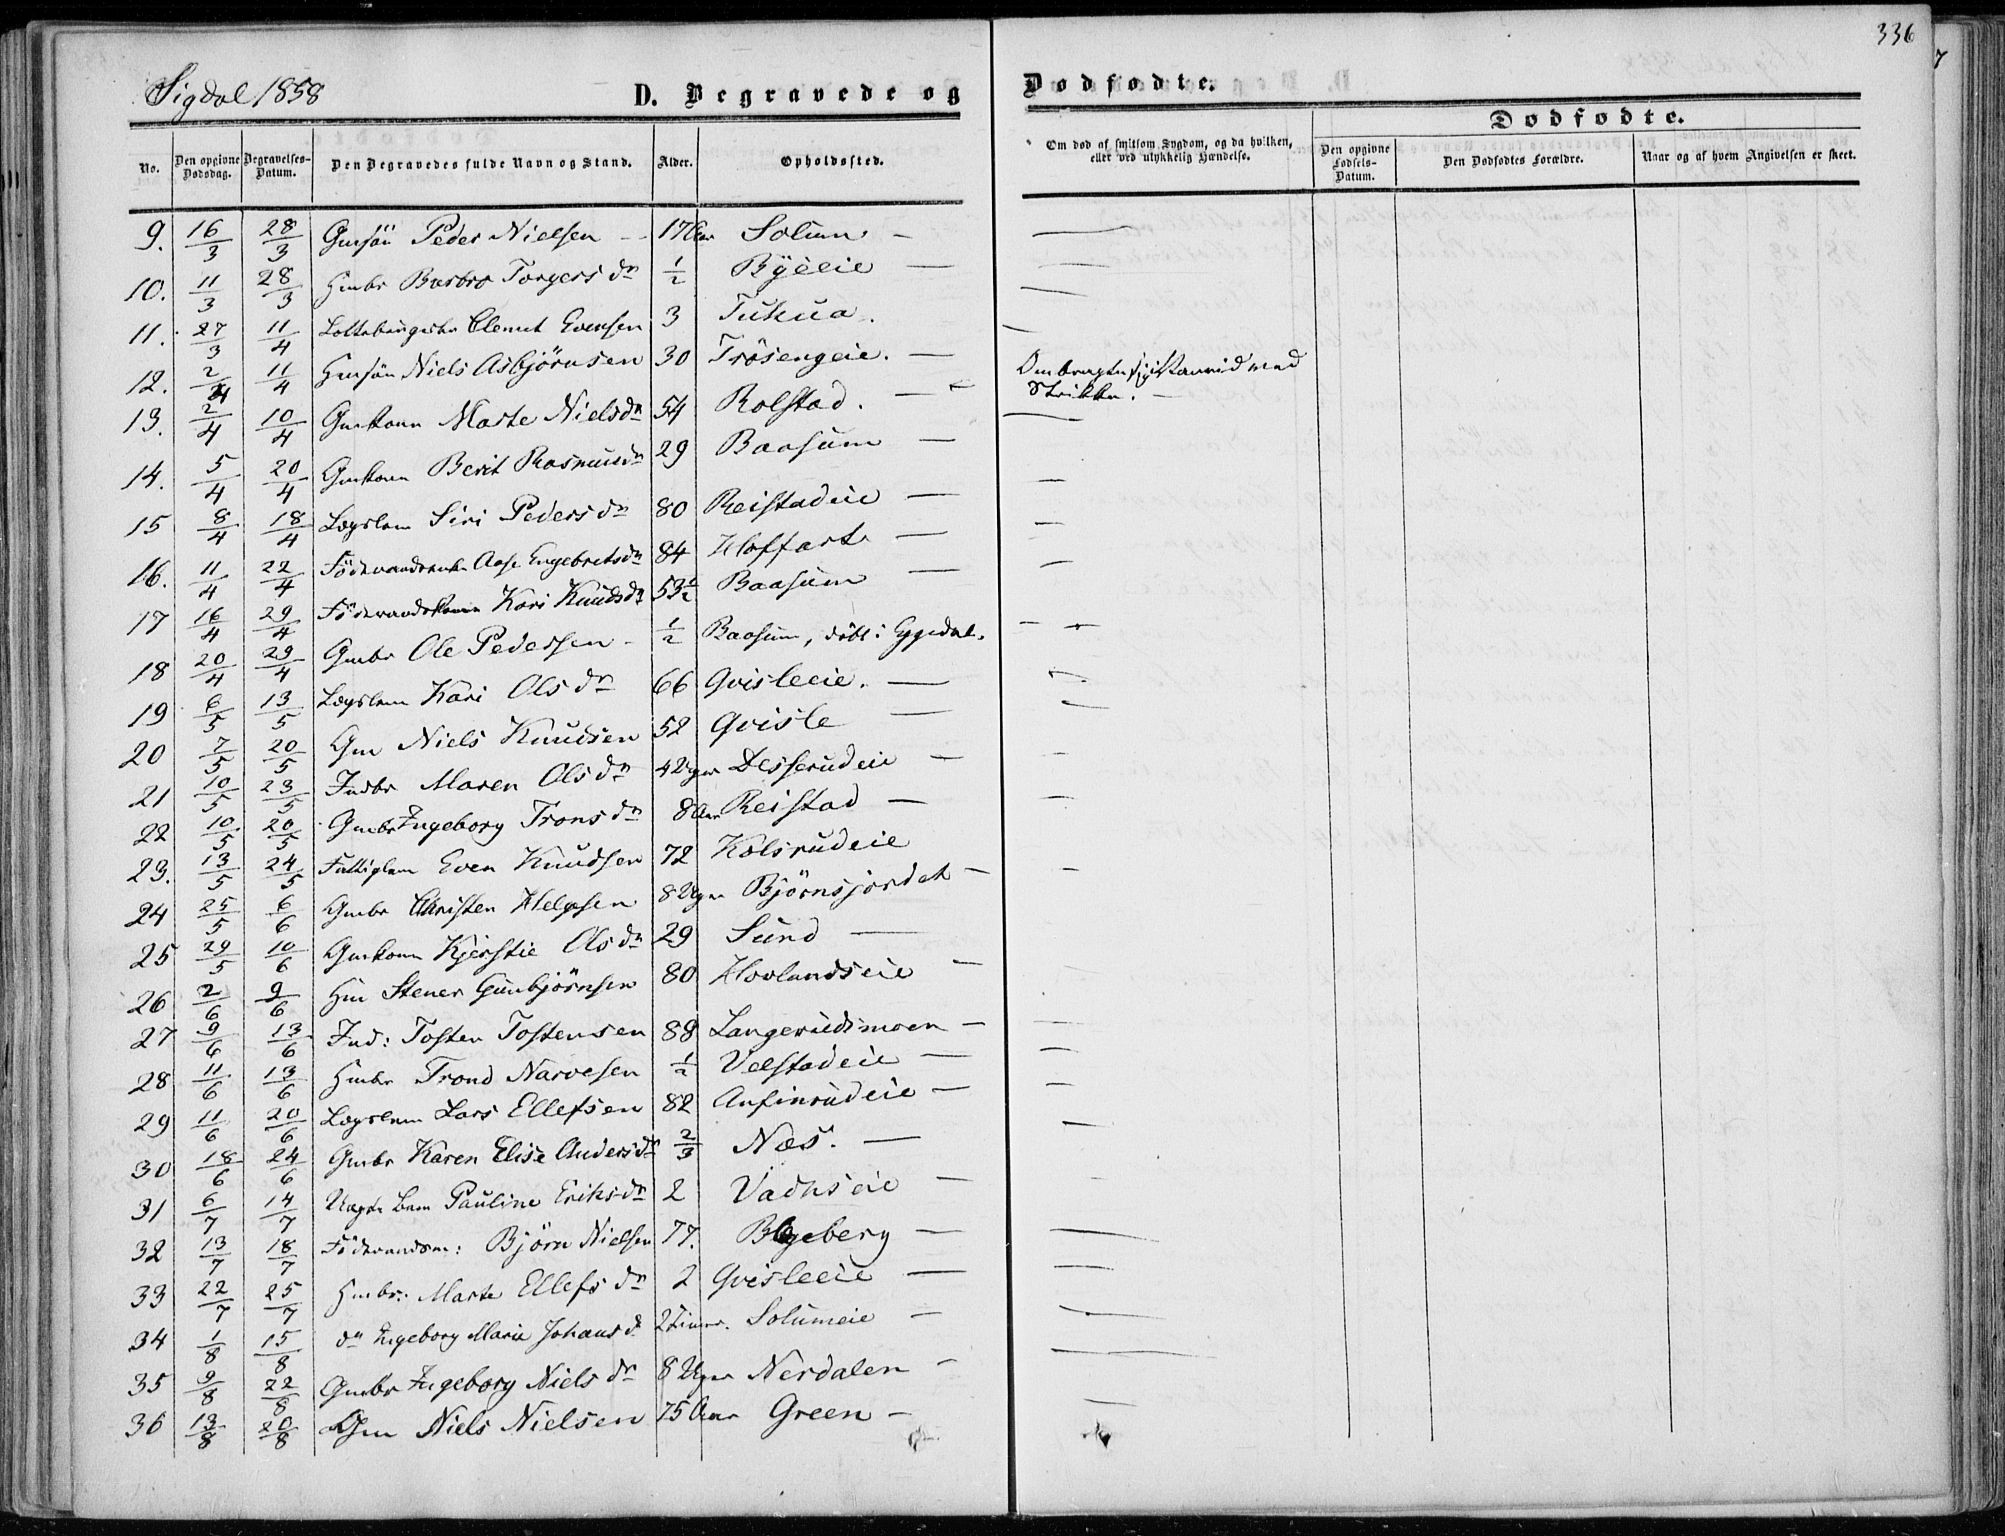 336
Sigdal 1858
D. Begravede og Dødfødte.
Dødfødte.
No. Den opgivne Dødsdag. Begravelses-Datum. Den Begravedes fulde Navn og Stand. Alder. Opholdssted. Om død af smitsom Sygdom, og da hvilken, eller ved ulykkelig Hændelse. Den opgivne Fødsels-Datum. Den Dødfødtes Forældre. Naar og af hvem Angivelsen er skeet.
9. 16/3 28/3 Gmsön Peder Nielsen 17 Aar Solum —
10. 11/3 28/3 Hmbr Barbro Torgersdr 1/2 Byeeie —
11. 27/3 11/4 Clemet Evensen 3 Tukua.
12. 2/4 11/4 Hmsön Niels Asbjörnsen 30 Trösengeie. — Ombragte sig med
Strikke. —
13. 2/4 10/4 Gmkone Marte Nielsdr 54 Rolstad. —
14. 5/4 20/4 Gmkone Berit Rasmusdr 29 Baasum —
15 8/4 18/4 Lægslem Siri Pedersdr 80 Reistadeie —
16. 11/4 22/4 Föderaadsenke Aase Engebretsdr 84 Hoffart —
17 16/4 29/4 Föderaadskone Kari Knudsdr 53 1/2 Baasum —
18 20/4 29/4 Gmbr Ole Pedersen 1/2 Baasum, döbt i Eggedal.
19 6/5 13/5 Lægslem Kari Olsdr 66 Gvisleeie. —
20 7/5 20/5 Gm Niels Knudsen 52 Gvisle —
21 10/5 23/5 Indbr Maren Olsdr 4 Uger Desserudeie —
22 10/5 20/5 Gmbr Ingeborg Tronsdr 8 Aar Reistad —
23. 13/5 24/5 Fattiglem Even Knudsen 72 Kolsrudeie
24 25/5 6/6 Gmbr Christen Helgesen 8 Uger Björnsjordet —
25 29/5 10/6 Gmkone Kjerstie Olsdr 29 Sund —
26 2/6 9/6 Hm Stener Gunbjörnsen 80 Hovlandseie —
27 9/6 13/6 Ind: Tosten Tostensen 88 Langerudsmoen —
28 11/6 13/6 Hmbr Trond Narvesen 1/2 Velstadeie —
29 11/6 20/6 Lægslem Lars Ellefsen 82 Anfinrudeie —
30 18/6 24/6 Gmbr Karen Elise Andersdr 2/3 Næs. —
31 6/7 14/7 Barn Pauline Eriksdr 2 Vadhseie —
32 13/7 18/7 Föderaadsm: Björn Nielsen 77. Bøgeberg —
33 22/7 25/7 Hmbr: Marte Ellefsdr 2 Gvisleeie —
34 1/8 15/8 do Ingeborg Marie Johansdr 2 Timer. Solumeie —
35 9/8 22/8 Gmbr Ingeborg Nielsdr 8 Uger Nerdalen —
36 13/8 20/8 Gm Niels Nielsen 75 Aar Green —